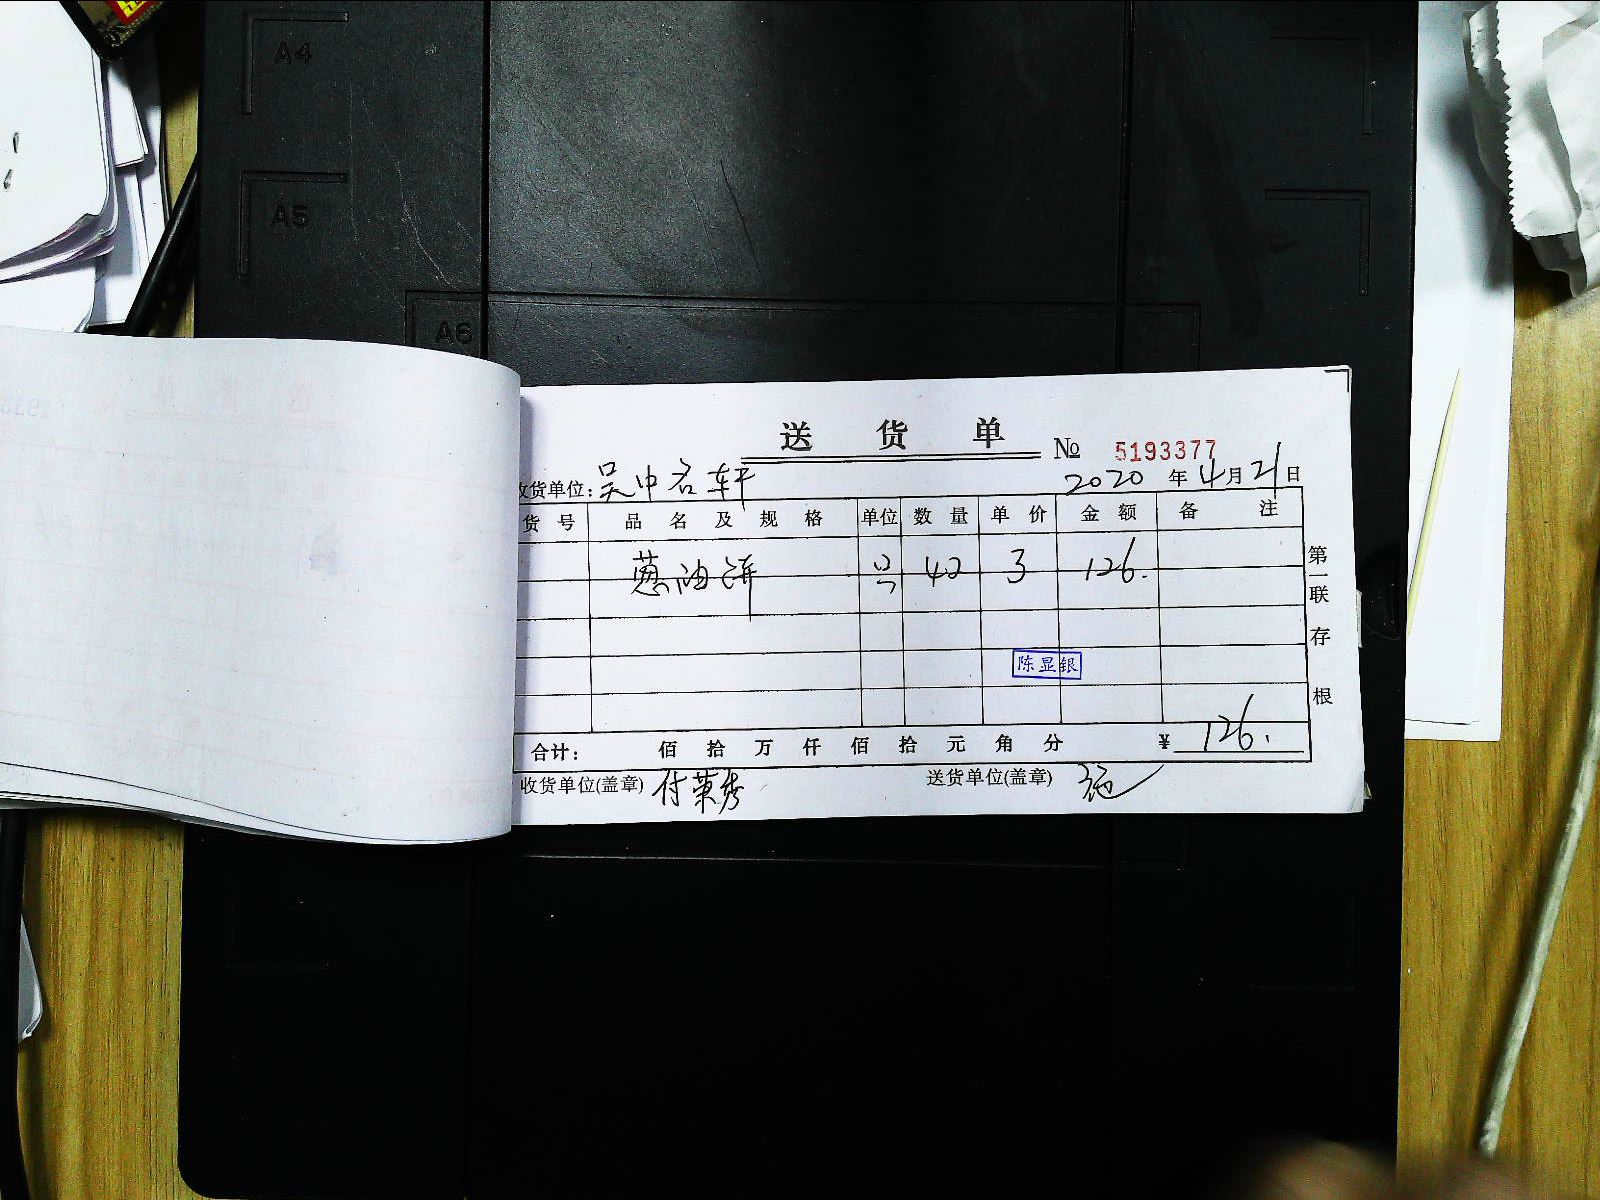 A4
A5
A6
送货单
№ 5193377
收货单位:吴中名轩 2020年4月21日
货号 品名及规格 单位 数量 单价 金额 备注
葱油饼 42 3 126.
陈显银
合计: 佰拾万仟佰拾元角分 ¥126.
收货单位(盖章) 付荣秀 送货单位(盖章)
第一联存根